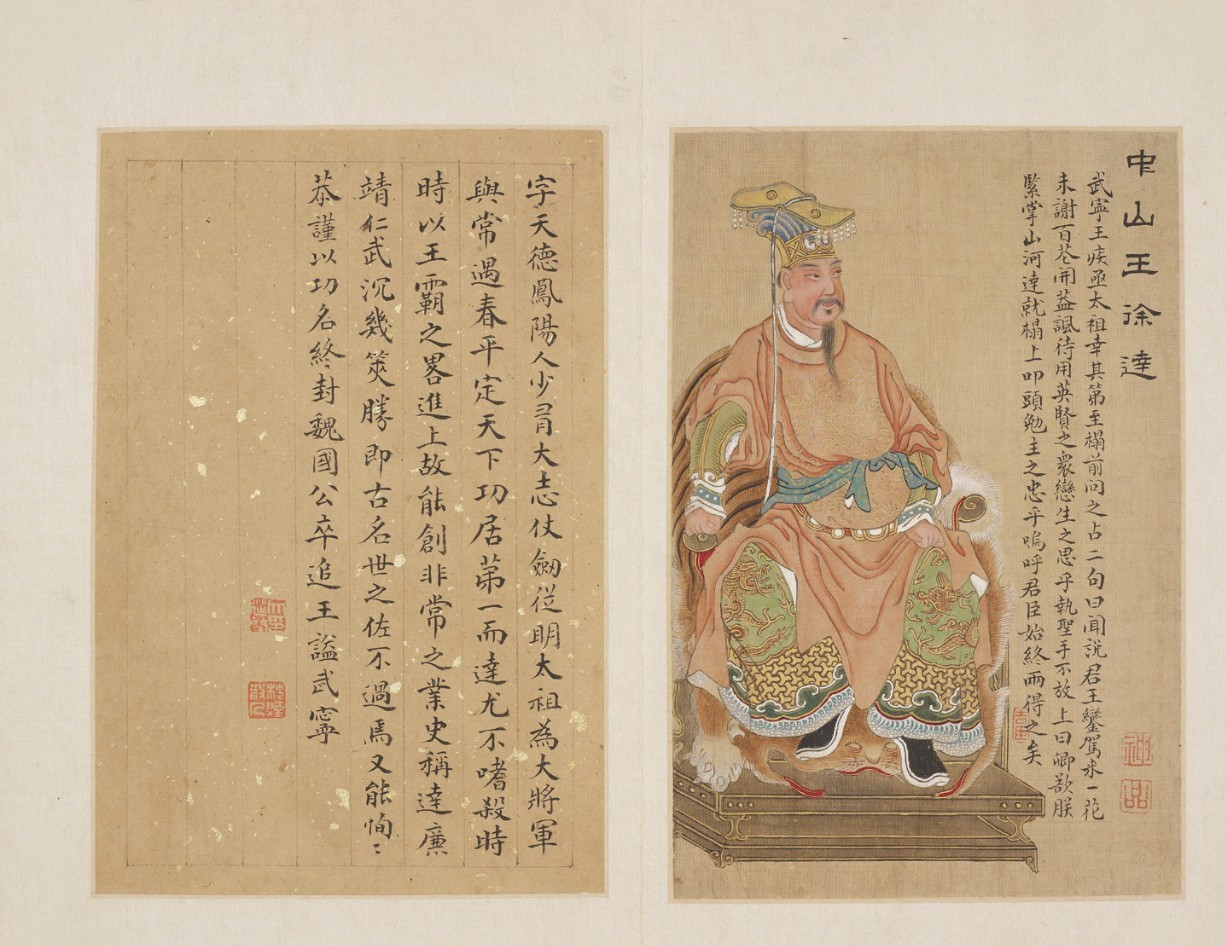 中山王徐達
武寧王疾亟太祖幸其第至榻前问之占二句曰闻説君王鑾駕来一花
未謝百花开益諷待用英賢之衆戀生之思乎執聖手不放上曰卿欲朕
緊掌山河達就榻上叩頭勉主之忠乎嗚呼君臣始終兩得之矣
神品
字天德鳳陽人少有大志仗劒從明太祖為大將軍
與常遇春平定天下功居第一而達尤不嗜殺時
時以王霸之畧進上故能創非常之業史稱達廉
靖仁武沉幾筴勝即古名世之佐不過焉又能恂〻
恭謹以功名終封魏國公卒追王謚武寧